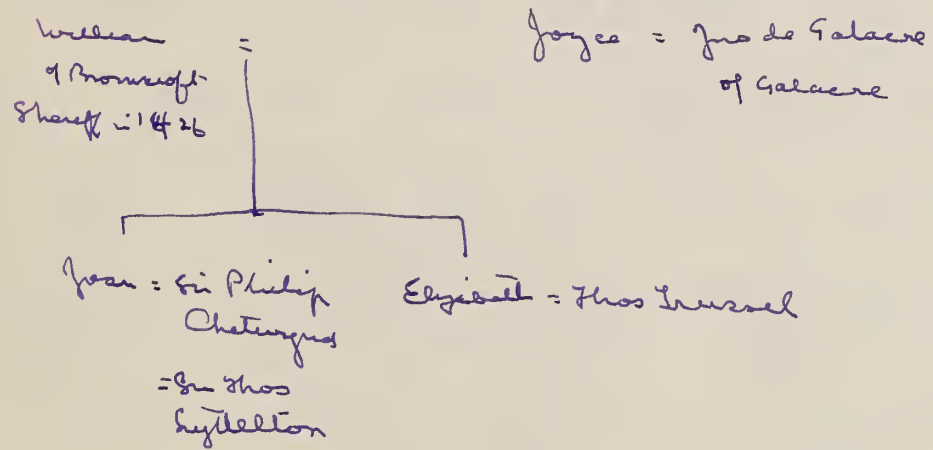 William =
of Bromcroft
Sheriff in 1426
Joyce = Jno de Galacre
of Galacre
Joan = Sir Philip
Chetwynd
= Sir Thos
Lyttelton
Elyzabeth = Thos Trussel